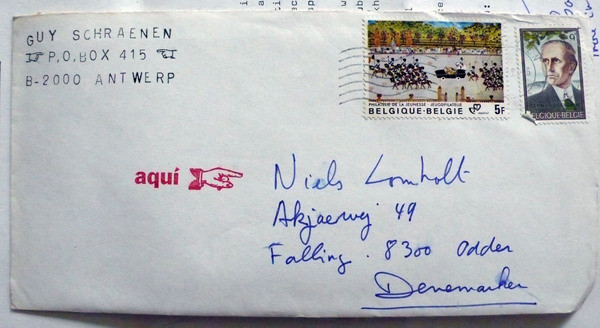 GUY SCHRAENEN
P.O.BOX 415
B-2000 ANTWERP
PHILATELIE DE LA JEUNESSE - JEUGDFILATELIE
BELGIQUE-BELGIE 5F
BELGIQUE-BELGIE
aquí
Niels Lomholt
Akjaervej 49
Falling. 8300 Odder
Denemarken